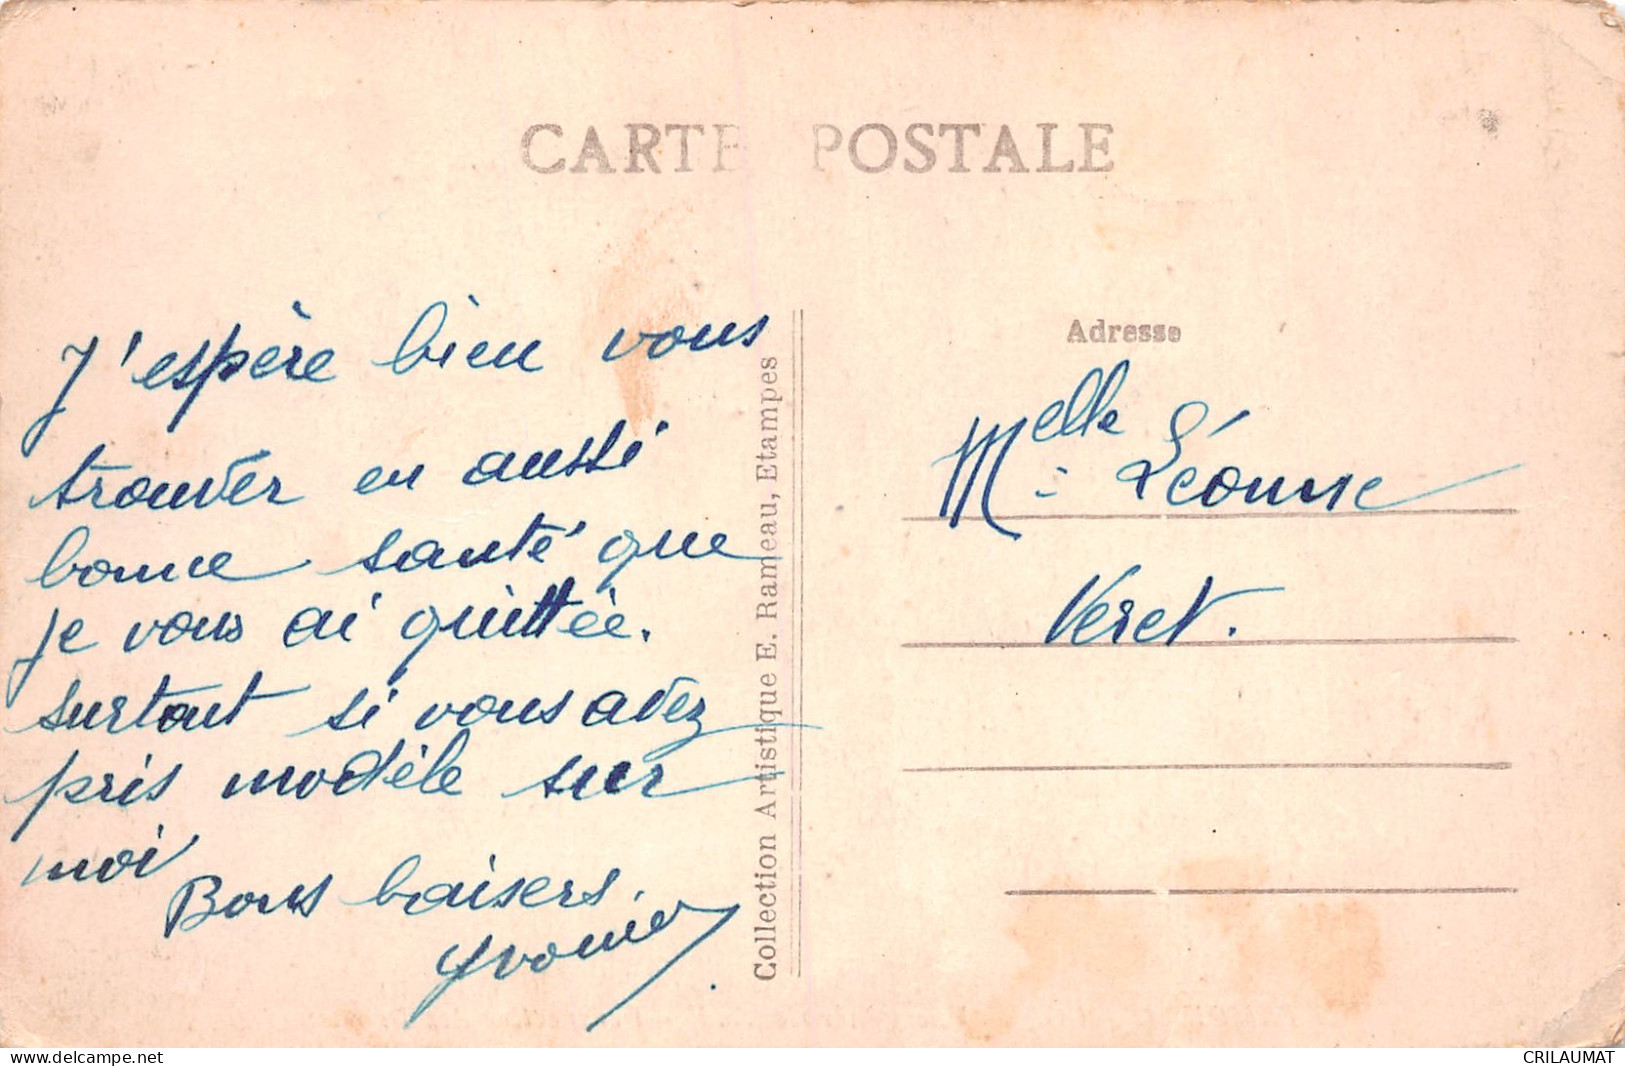 CARTE POSTALE
J'espère bien vous
trouver en aussi
bonne santé que
je vous ai quittée.
surtout si vous avez
pris modèle sur
moi
Bons baisers.
Yvonne
Collection Artistique E. Rameau, Etampes
Adresse
Melle Léonne
Veret.
www.delcampe.net
CRILAUMAT